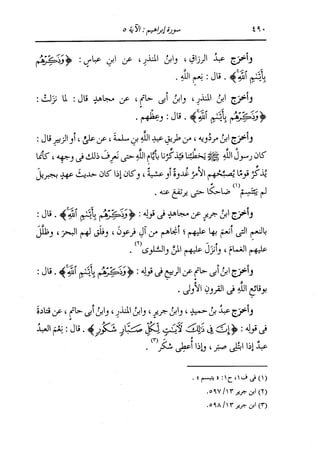 ٤٩٠ سورة إبراهيم : الآية ٥
وأخرج عبدُ الرزاقِ ، وابنُ المنذرِ ، عن ابنِ عباسٍ : ﴿وَذَكِّرْهُم
بِأَيَّىٰمِ اللَّهِ﴾ . قال : نِعَمِ اللهِ .
وأخرَج ابنُ المنذرِ ، وابنُ أبى حاتمٍ ، عن مجاهدٍ قال : لما نزلت :
﴿وَذَكِّرْهُم بِأَيَّىٰمِ اللَّهِ﴾ . قال : وعَظهم .
وأخرَج ابنُ مَرْدُويه ، من طريقِ عبدِ اللهِ بنِ سلمةَ ، عن علىٍّ ، أو الزبيرِ قال :
كان رسولُ اللهِ ﷺ يَخطُبُنا فيُذكِّرُنا بأيامِ اللهِ حتى نَعرِفَ ذلك فى وجهِه ، كأنما
يُذكِّرُ قومًا يُصبِّحُهم الأمرُ غُدوةً أو عشيةً ، وكان إذا كان حديثَ عهدٍ بجبريلَ
لم يَتَبَسَّمْ(١) ضاحكًا حتى يرتفعَ عنه .
وأخرَج ابنُ جريرٍ عن مجاهدٍ فى قولِه : ﴿وَذَكِّرْهُم بِأَيَّىٰمِ اللَّهِ﴾ . قال :
بالنعمِ التى أنعمَ بها عليهم ؛ أنجاهم من آلِ فرعونَ ، وفلَق لهم البحرَ ، وظلَّل
عليهم الغمامَ ، وأنزَل عليهم المنَّ والسَّلْوى(٢) .
وأخرَج ابنُ أبى حاتمٍ عن الربيعِ فى قولِه : ﴿وَذَكِّرْهُم بِأَيَّىٰمِ اللَّهِ﴾ . قال :
بوقائعِ اللهِ فى القرونِ الأولى .
وأخرَج عبدُ بنُ حميدٍ ، وابنُ جريرٍ ، وابنُ المنذرِ ، وابنُ أبى حاتمٍ ، عن قتادةَ
فى قولِه : ﴿إِنَّ فِى ذَٰلِكَ لَآيَٰتٍ لِّكُلِّ صَبَّارٍ شَكُورٍ﴾ . قال : نِعْمَ العبدُ
عبدٌ إذا ابتُلِى صبَر ، وإذا أُعطِى شكَر(٣) .
(١) فى ف١، ح١ : « يتبسم » .
(٢) ابن جرير ١٣/ ٥٩٧ .
(٣) ابن جرير ١٣/ ٥٩٨ .